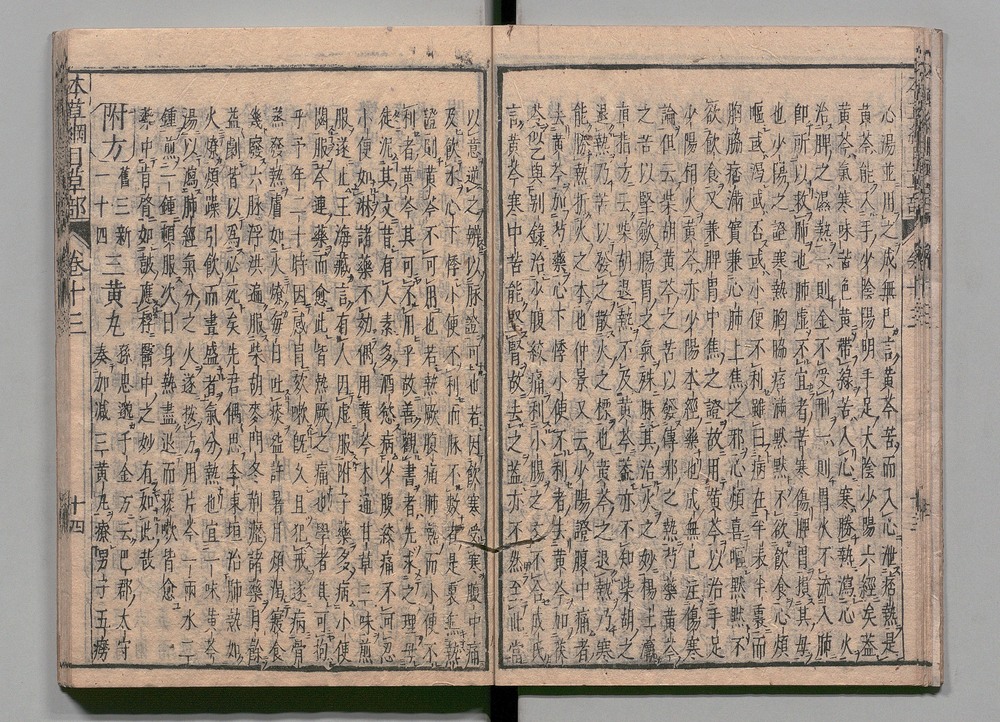 心湯並用之成無已言黃芩苦而入心泄痞熱是
黃芩能入手少陰陽明手足太陰少陽六經矣蓋
黃芩氣寒味苦色黃帶綠苦入心寒勝熱瀉心火
治脾之濕熱一則金不受刑一則胃火不流入肺
即所以救肺也肺虛不宜者苦寒傷脾胃損其母
也少陽之證寒熱胸脇痞滿默默不欲飲食心煩
嘔或渴或否或小便不利雖曰病在半表半裏而
胸脇痞滿實兼心肺上焦之邪心煩喜嘔默默不
欲飲食又兼脾胃中焦之證故用黃芩以治手足
少陽相火黃芩亦少陽本經藥也成無已注傷寒
論但云柴胡黃芩之苦以發傳邪之熱芍藥黃芩
之苦以堅斂腸胃之氣殊昧其治火之妙楊士瀛
直指方云柴胡退熱不及黃芩蓋亦不知柴胡之
退熱乃苦以發之散火之標也黃芩之退熱乃寒
能勝熱折火之本也仲景又云少陽證腹中痛者
去黃芩加芍藥心下悸小便不利者去黃芩加茯
苓似與別錄治少腹絞痛利小腸之文不合成氏
言黃芩寒中苦能堅腎故去之蓋亦不然至此當
以意逆之辨以脉證可也若因飲寒受寒腹中痛
及飲水心下悸小便不利而脉不數者是裏無熱
證則黃芩不可用也若熱厥腹痛肺熱而小便不
利者黃芩其可不用乎故善觀書者先求之理毋
徒泥其文昔有人素多酒慾病少腹絞痛不可忍
小便如淋諸藥不効偶用黃芩木通甘草三味煎
服遂止王海藏言有人因虛服附子藥多病小便
閟服芩連藥而愈此皆熱厥之痛也學者其可拘
乎予年二十時因感冒欬嗽既久且犯戒遂病骨
蒸發熱膚如火燎每日吐痰盌許暑月煩渴寢食
幾廢六脉浮洪遍服柴胡麥門冬荊瀝諸藥月餘
益劇皆以爲必死矣先君偶思李東垣治肺熱如
火燎煩躁引飲而晝盛者氣分熱也宜一味黃芩
湯以瀉肺經氣分之火遂按方用片芩一兩水二
鍾煎一鍾頓服次日身熱盡退而痰嗽皆愈
藥中肯綮如鼓應桴醫中之妙有如此哉
附方 舊三新一十四 三黃丸 孫思邈千金方云巴郡太守奏加減三黃丸療男子五癆
本草綱目草部 卷十三 十四